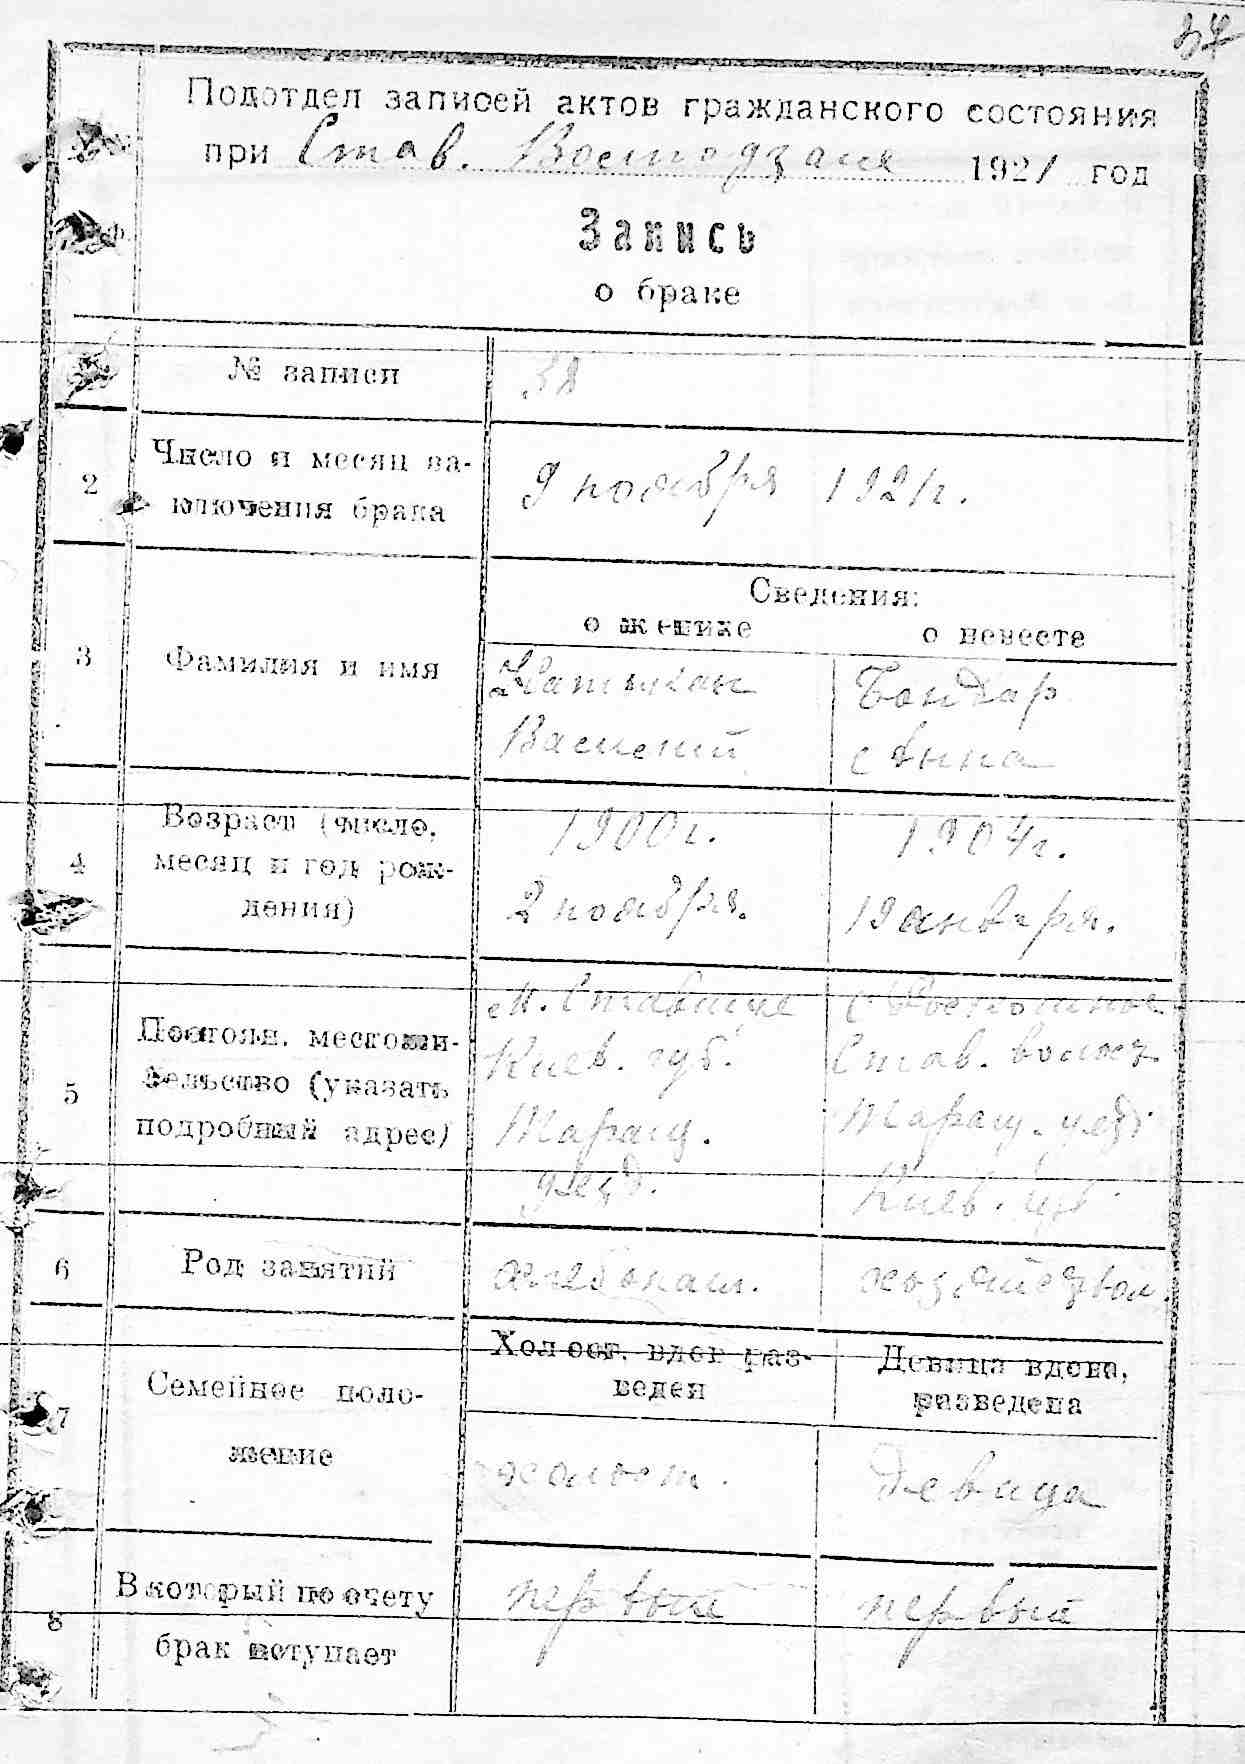 37
Подотдел записей актов гражданского состояния
при Став. 1921 год
Запись
о браке
№ записи 38
2 Число и месяц за-
ключения брака 9 ноября 1921г.
Сведения:
о женихе о невесте
3 Фамилия и имя
Василий Бондар
Анна
4 Возраст (число,
месяц и год рож-
дения)
1900г. 1904г.
2 ноября. 19 января.
5 Постоян. местожи-
тельство (указать
подробный адрес)
м. Ставище
Киев. губ.
Таращ.
уезд.
Став. волост
Таращ. уезд
Киев. губ.
6 Род занятий хлебопаш.
7 Семейное поло-
жение
Холост. вдов раз-
веден
Девица вдова,
разведена
холост. девица
8 В который по счету
брак вступает
первый первый